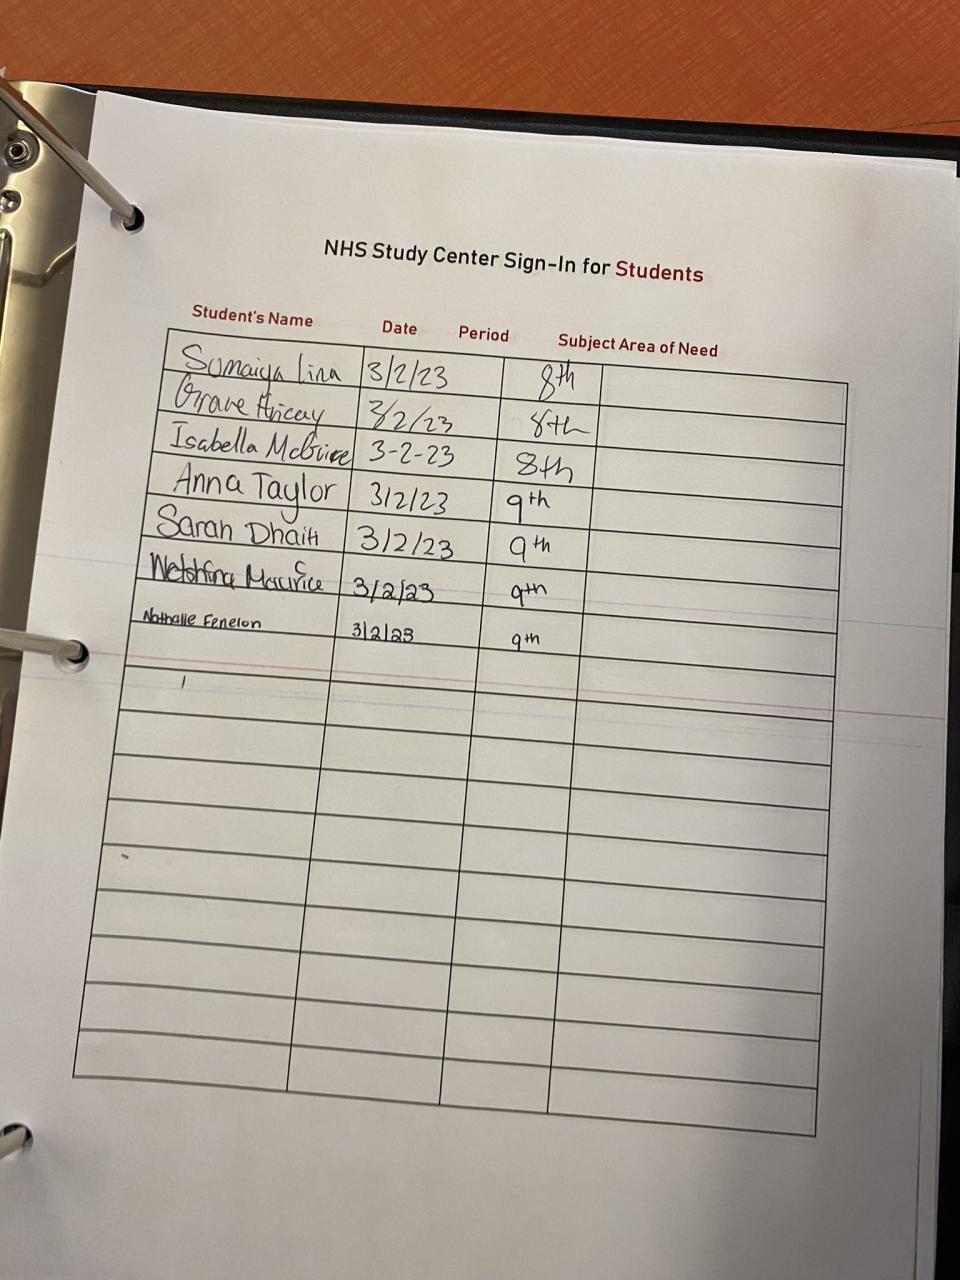 NHS Study Center Sign-In for Students
Student's Name Date Period Subject Area of Need
Sumaiya Lina 3/2/23 8th
3/2/23 8th
Isabella McGuire 3-2-23 8th
Anna Taylor 3/2/23 9th
Sarah Dhaiti 3/2/23 9th
Maurice 3/2/23 9th
Nathalie Fenelon 3/2/23 9th